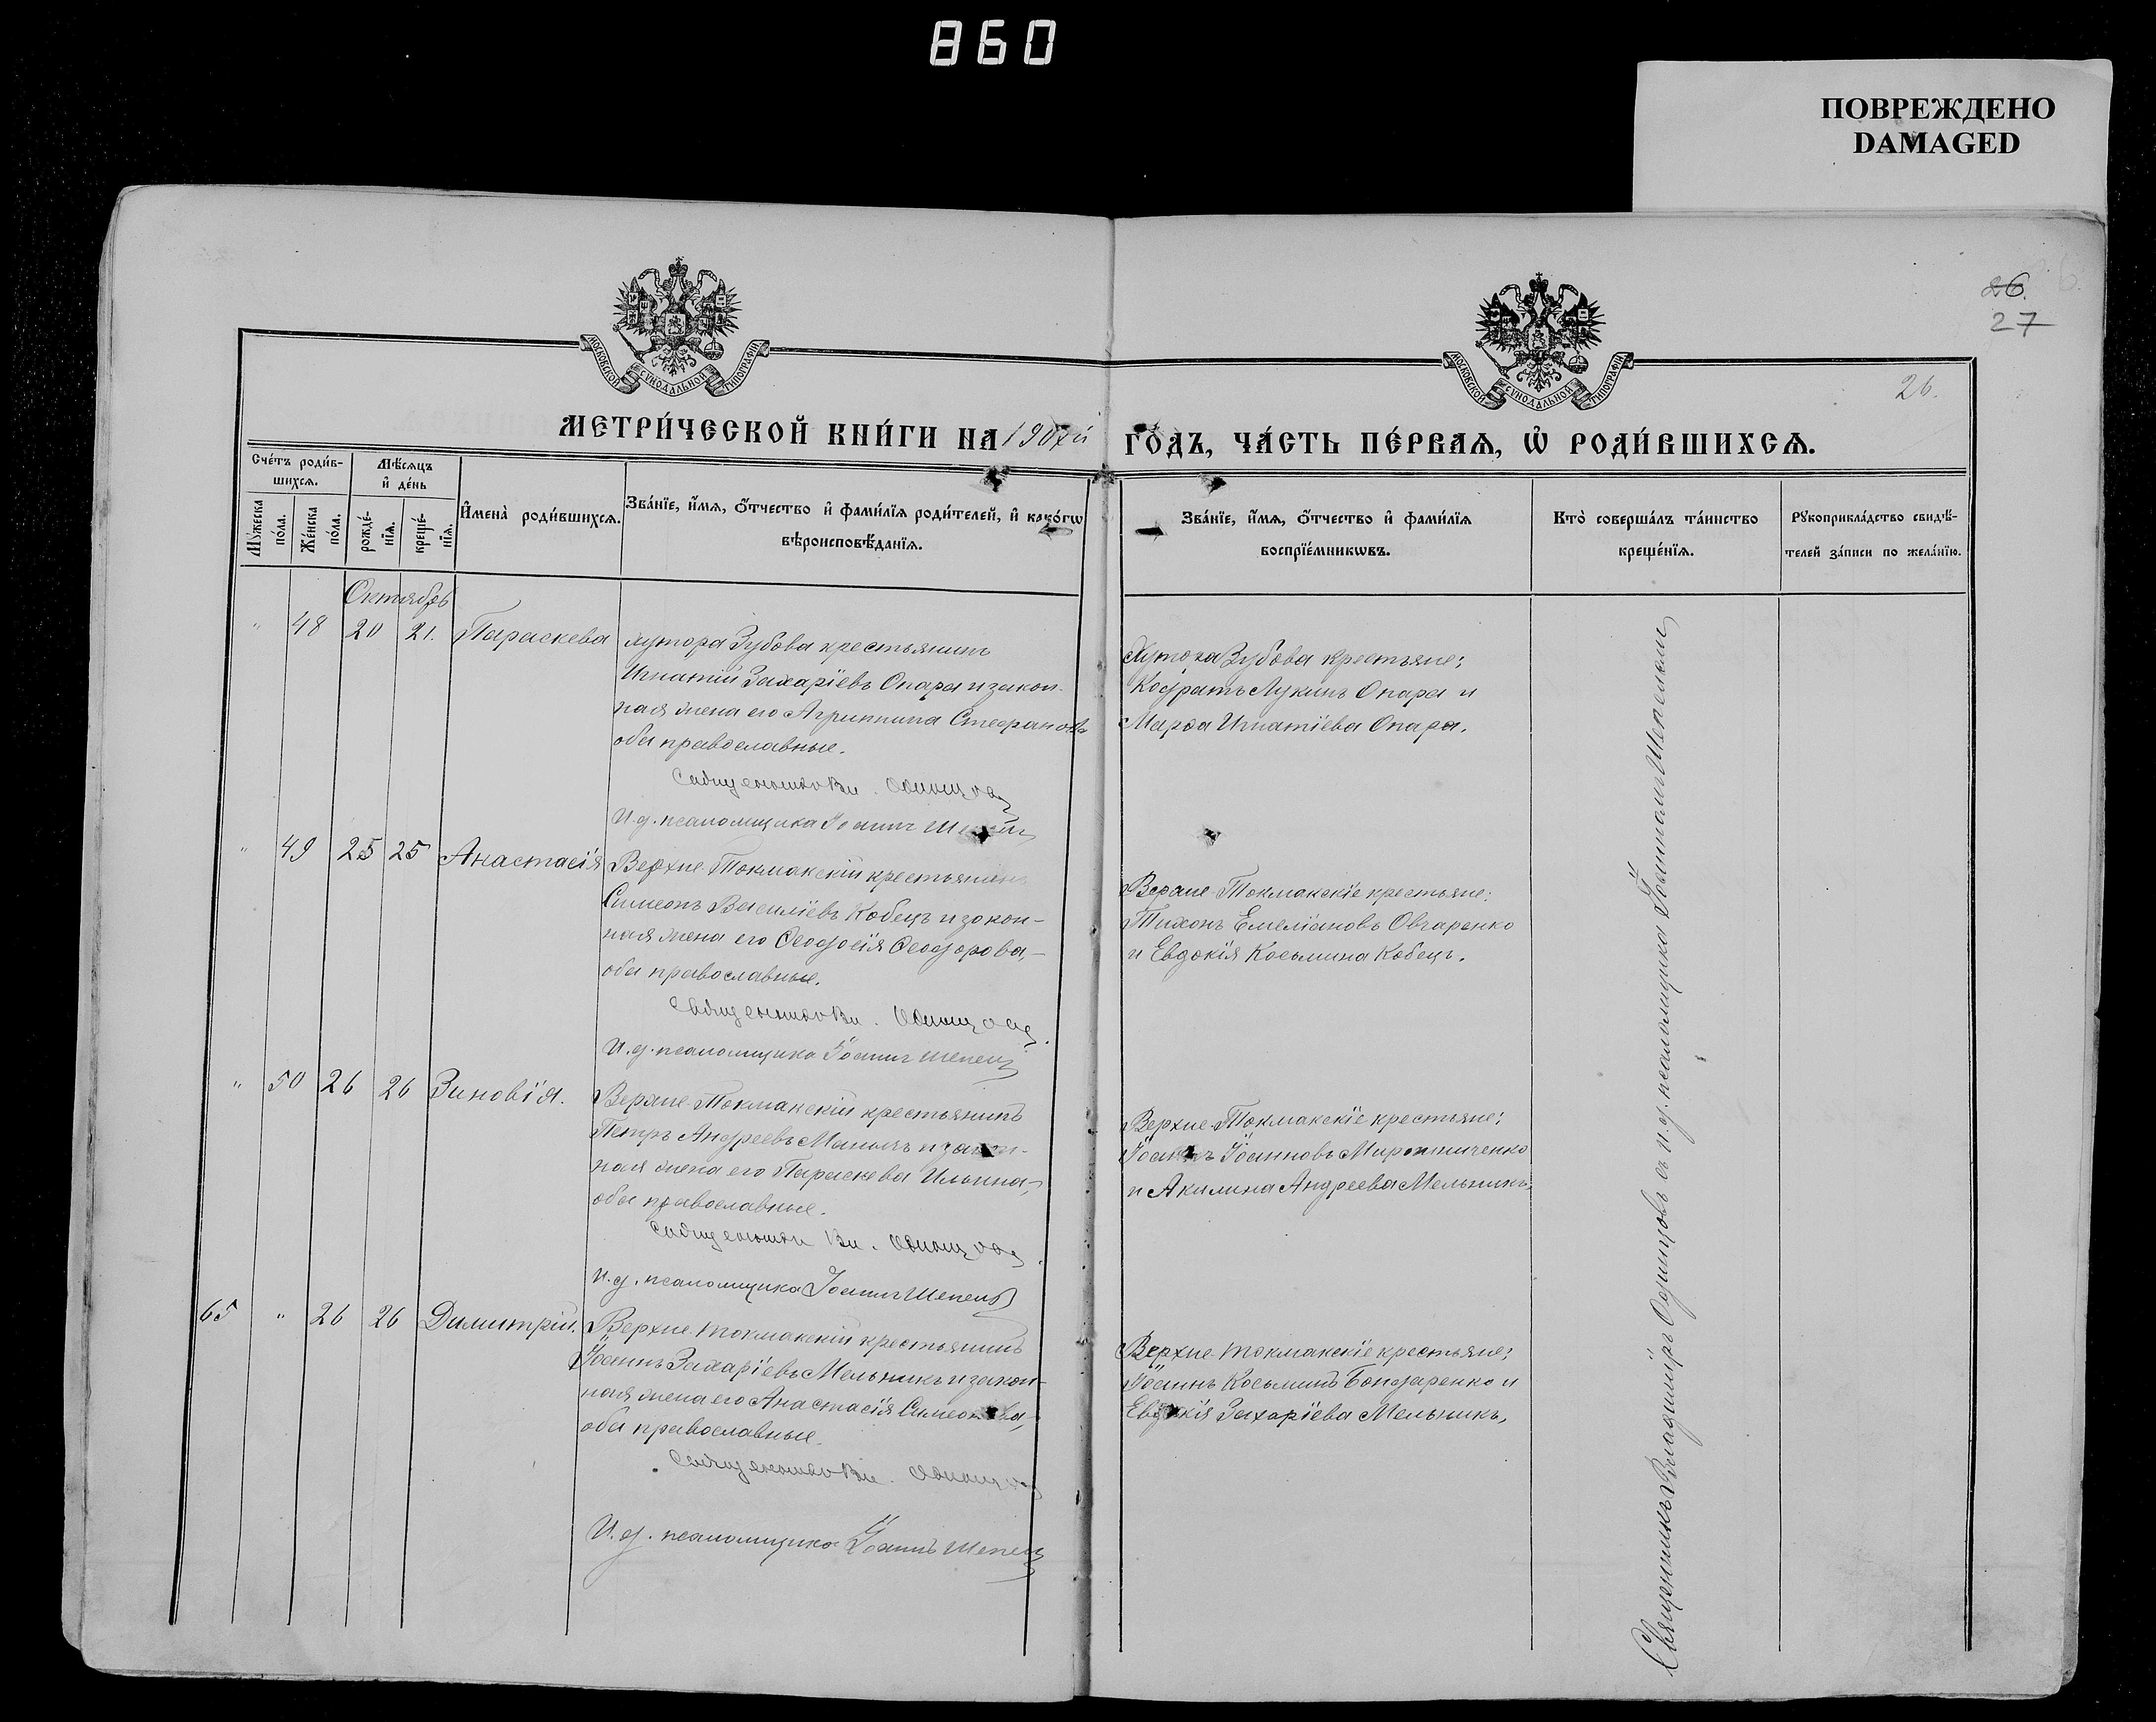 860
ПОВРЕЖДЕНО
DAMAGED
26.
27
26.
МОСКОВСКОЙ СѴНОДАЛЬНОЙ ТИПОГРАФІИ
МОСКОВСКОЙ СѴНОДАЛЬНОЙ ТИПОГРАФІИ
МЕТРИ́ЧЕСКОЙ КНИ́ГИ НА 1907й
ГО́ДЪ, ЧА́СТЬ ПЕ́РВАѦ, Ѽ РОДИ́ВШИХСѦ.
Сче́тъ роди́в-
шихсѧ.
Мѣ́сѧцъ
и҆ де́нь
Мꙋ́жеска
по́ла.
Же́нска
по́ла.
рожде́-
нїѧ.
креще́-
нїѧ.
И҆мена̀ роди́вшихсѧ.
Зва́нїе, и҆́мѧ, ѻ҆́тчество и҆ фами́лїѧ роди́телей, и҆ како́гѡ
вѣроисповѣ́данїѧ.
Зва́нїе, и҆́мѧ, ѻ҆́тчество и҆ фами́лїѧ
воспрїе́мникѡвъ.
Кто̀ соверша́лъ та́инство
креще́нїѧ.
Рꙋкоприкла́дство свидѣ́-
телей за́писи по жела́нїю.
Октябрь
" 48 20 21. Параскева
хутора Зубова крестьянинъ
Игнатій Захаріевъ Опара и закон-
ная жена его Агриппина Стефанова
оба православные.
И. д. псаломщика Іоаннъ
Хутора Зубова крестьяне:
Кодратъ Лукинъ Опара и
Марѳа Игнатіева Опара.
" 49 25 25 Анастасія
Верхне-Токмакскій крестьянинъ
Симеонъ Василіевъ Кобецъ и закон-
ная жена его Ѳеодосія Ѳеодорова,-
оба православные.
И. д. псаломщика Іоаннъ Шепель
Верхне-Токмакскіе крестьяне:
Тихонъ Емеліановъ Овчаренко
и Евдокія Косьмина Кобецъ.
" 50 26 26 Зиновія.
Верхне-Токмакскій крестьянинъ
Петръ Андреевъ и закон-
ная жена его Параскева Ильина,-
оба православные.
И. д. псаломщика Іоаннъ Шепель
Верхне-Токмакскіе крестьяне:
Іоаннъ Іоанновъ Миронниченко
и Акилина Андреева Мельникъ.
65 " 26 26 Димитрій.
Верхне-токмакскій крестьянинъ
Іоаннъ Захаріевъ Мельникъ и закон-
ная жена его Анастасія Симеонова,-
оба православные.
И. д. псаломщика Іоаннъ Шепель
Верхне-токмакскіе крестьяне:
Іоаннъ Косьминъ Бондаренко и
Евдокія Захаріева Мельникъ.
Священникъ Владиміръ Одинцовъ съ и. д. псаломщика Іоанномъ Шепелемъ